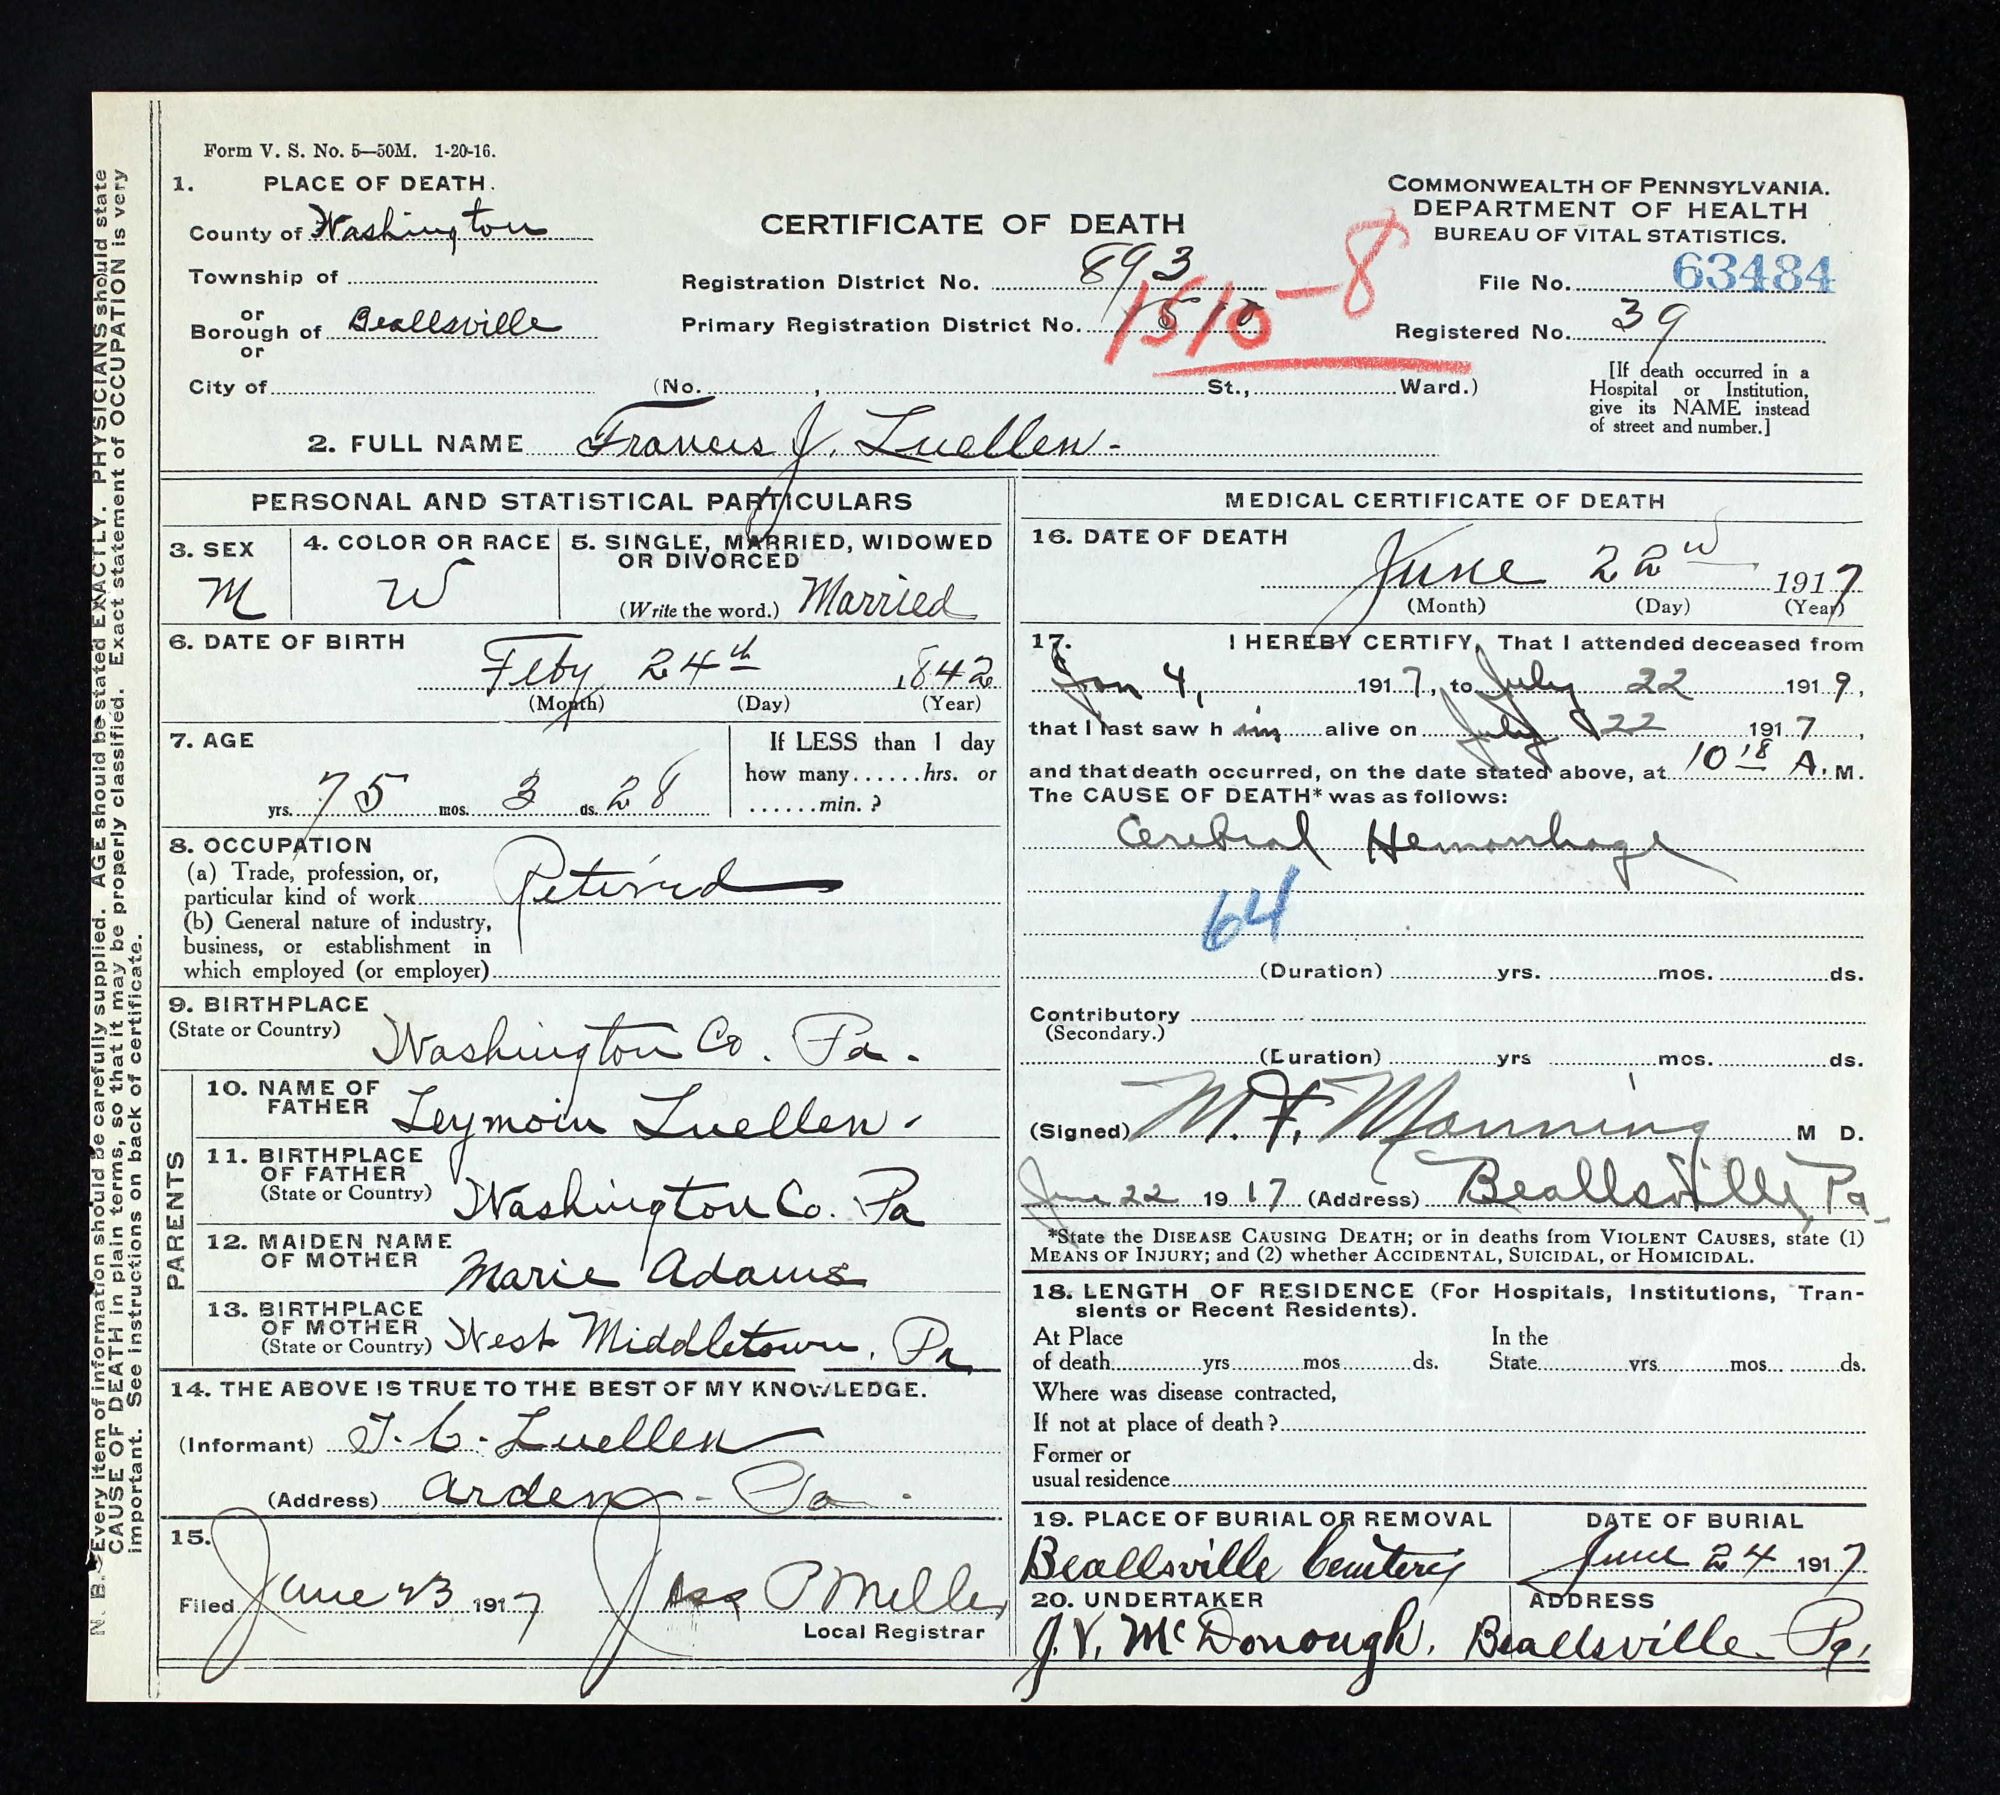 Form V. S. No. 5—50M. 1-20-16.
1. PLACE OF DEATH.
County of Washington
Township of
or
Borough of Beallsville
or
City of (No. , St., Ward.)
CERTIFICATE OF DEATH
Registration District No. 893
Primary Registration District No. 1510
1510-8
COMMONWEALTH OF PENNSYLVANIA.
DEPARTMENT OF HEALTH
BUREAU OF VITAL STATISTICS.
File No. 63484
Registered No. 39
[If death occurred in a
Hospital or Institution,
give its NAME instead
of street and number.]
2. FULL NAME Francis J. Luellen
PERSONAL AND STATISTICAL PARTICULARS
3. SEX
M
4. COLOR OR RACE
W
5. SINGLE, MARRIED, WIDOWED
OR DIVORCED
(Write the word.) Married
6. DATE OF BIRTH
Feby 24th 1842
(Month) (Day) (Year)
7. AGE
yrs. 75 mos. 3 ds. 28
If LESS than 1 day
how many......hrs. or
......min. ?
8. OCCUPATION
(a) Trade, profession, or,
particular kind of work Retired
(b) General nature of industry,
business, or establishment in
which employed (or employer)
9. BIRTHPLACE
(State or Country)
Washington Co. Pa.
PARENTS
10. NAME OF
FATHER
Luellen
11. BIRTHPLACE
OF FATHER
(State or Country) Washington Co. Pa
12. MAIDEN NAME
OF MOTHER Marie Adams
13. BIRTHPLACE
OF MOTHER
(State or Country) West Middletown, Pa
14. THE ABOVE IS TRUE TO THE BEST OF MY KNOWLEDGE.
(Informant) Luellen
(Address) Arden - Pa.
15.
Filed June 23 1917 P Miller
Local Registrar
MEDICAL CERTIFICATE OF DEATH
16. DATE OF DEATH
June 22 1917
(Month) (Day) (Year)
17. I HEREBY CERTIFY, That I attended deceased from
Jan 4, 1917, to July 22 1919,
that I last saw h im alive on July 22 1917,
and that death occurred, on the date stated above, at 10 18 A. M.
The CAUSE OF DEATH* was as follows:
Cerebral Hemorrhage
64
(Duration) yrs. mos. ds.
Contributory
(Secondary.)
(Duration) yrs mos. ds.
(Signed) M. F. Manning M D.
June 22 1917 (Address) Beallsville, Pa
*State the DISEASE CAUSING DEATH; or in deaths from VIOLENT CAUSES, state (1)
MEANS OF INJURY; and (2) whether ACCIDENTAL, SUICIDAL, or HOMICIDAL.
18. LENGTH OF RESIDENCE (For Hospitals, Institutions, Tran-
sients or Recent Residents).
At Place In the
of death yrs mos ds. State yrs. mos. ds.
Where was disease contracted,
If not at place of death?
Former or
usual residence
19. PLACE OF BURIAL OR REMOVAL
Beallsville Cemetery
DATE OF BURIAL
June 24 1917
20. UNDERTAKER
J. V. McDonough.
ADDRESS
Beallsville Pa.
N. B.—Every item of information should be carefully supplied. AGE should be stated EXACTLY. PHYSICIANS should state
CAUSE OF DEATH in plain terms, so that it may be properly classified. Exact statement of OCCUPATION is very
important. See instructions on back of certificate.